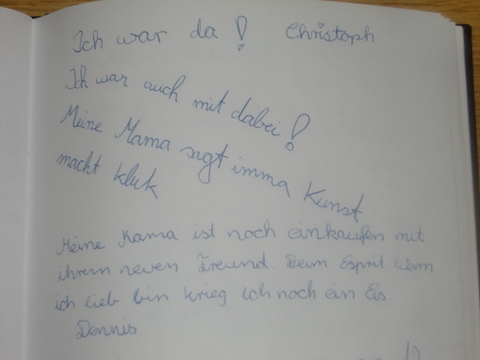 Ich war da! Christoph
Ich war auch mit dabei!
Meine Mama sagt imma Kunst
macht kluk
Meine Mama ist noch einkaufen mit
ihrem neuen Freund. Beim Esprit. Wenn
ich lieb bin krieg ich noch ein Eis.
Dennis